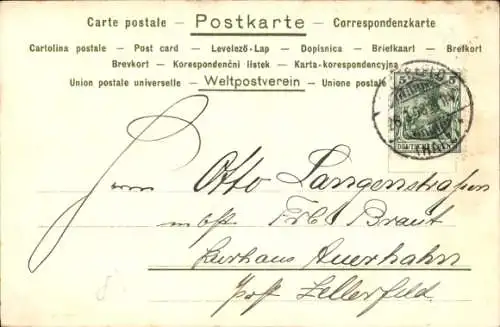 Carte postale – Postkarte – Correspondenzkarte
Cartolina postale – Post card – Levelező-Lap – Dopisnica – Briefkaart – Brefkort
Brevkort – Korespondenční listek – Karta-korespondencyjna
Union postale universelle – Weltpostverein – Unione postale
DEUTSCHES REICH
Herrn Otto Langenstraßen
nebst Frl. Braut
Kurhaus Auerhahn
Post Zellerfeld